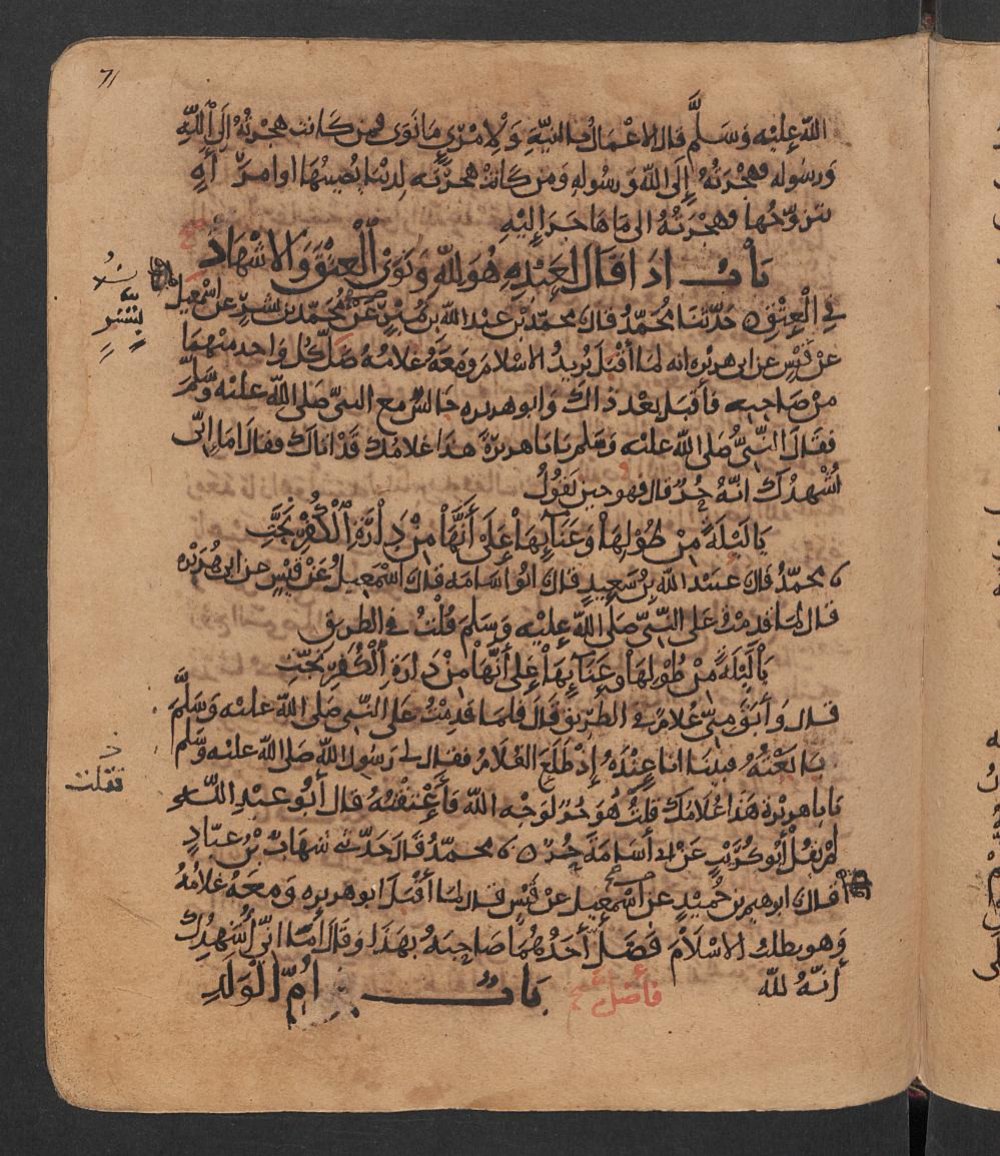 71
الله عليه وسلم قال الاعمال بالنية ولامرئ ما نوى فمن كانت هجرته إلى الله
ورسوله فهجرته إلى الله ورسوله ومن كانت هجرته لدنيا يصيبها او امرأة
يتزوجها فهجرته الى ما هاجر إليه
باب اذا قال لعبده هو لله ونوى العتق والاشهاد
في العتق حدثنا محمد قال محمد بن عبد الله بن نمير عن محمد بن بشر عن إسمعيل
عن قيس عن ابى هريرة انه لما أقبل يريد الاسلام ومعه غلامه ضل كل واحد منهما
من صاحبه فأقبل بعد ذاك وابو هريرة جالس مع النبي صلى الله عليه وسلم
فقال النبي صلى الله عليه وسلم يابا هريرة هذا غلامك قد اتاك فقال اما إني
أشهدك انه حر قال فهو حين يقول
يا ليلة من طولها وعنائها على أنها من دارة الكفر نجت
محمد قال عبيد الله بن سعيد قال ابو اسامة قال اسمعيل عن قيس عن ابى هريرة
قال لما قدمت على النبي صلى الله عليه وسلم قلت في الطريق
يا ليلة من طولها وعنائها على أنها من دارة الكفر نجت
قال وأبق مني غلام في الطريق قال فلما قدمت على النبي صلى الله عليه وسلم
بايعته فبينا انا عنده إذ طلع الغلام فقال لي رسول الله صلى الله عليه وسلم
يابا هريرة هذا غلامك قلت هو حر لوجه الله فأعتقته قال أبو عبد الله
لم يقل أبو كريب عن ابى أسامة حر محمد قال حدثني شهاب بن عباد
قال ابرهيم بن حميد عن اسمعيل عن قيس قال لما أقبل ابو هريرة ومعه غلامه
وهو يطلب الاسلام فضل أحدهما صاحبه بهذا وقال أما اني أشهدك
أنه لله
فأضل
باب ام الولد
بشر
فقلت